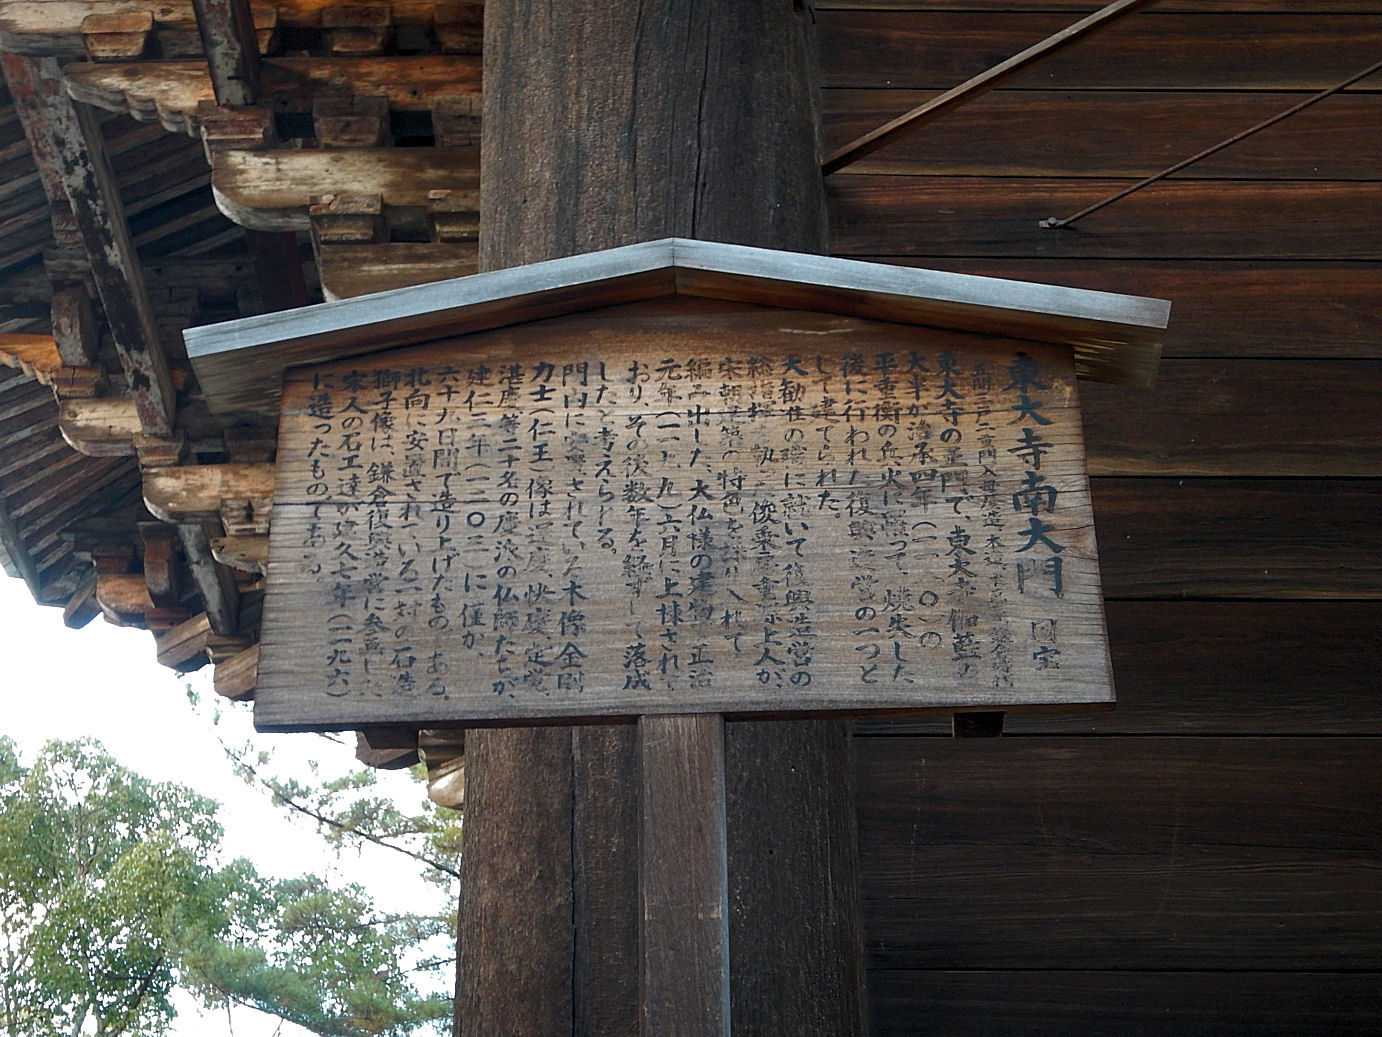 東大寺南大門 国宝
五間三戸二重門 入母屋造 本瓦
東大寺の正門で、東大寺伽藍の
大半が治承四年（一一八〇）の
平重衡の兵火に罹って、焼失した
後に行われた復興造営の一つと
して建てられた。
大勧進の職に就いて復興造営の
総指揮を執った俊乗房重源上人が、
宋朝建築の特色を採り入れて
編み出した、大仏様の建物。正治
元年（一一九九）六月に上棟されて
おり、その後数年を経ずして落成
したと考えられる。
門内に安置されている木像金剛
力士（仁王）像は運慶、快慶、定覚、
湛慶、等二十名の慶派の仏師たちが、
建仁三年（一二〇三）に僅か、
六十九日間で造り上げたものである。
北向に安置されている一対の石造
獅子像は、鎌倉復興造営に参画した
宋人の石工達が建久七年（一一九六）
に造ったものである。